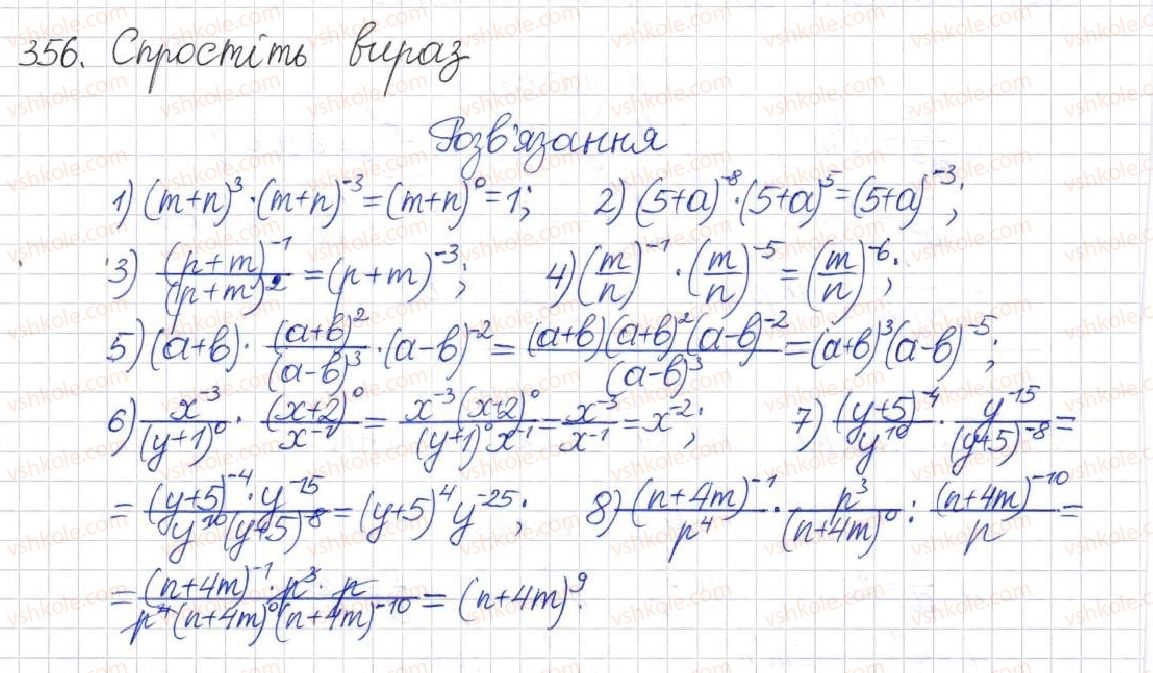 356. Спростіть вираз
Розв'язання
1) (m+n)³·(m+n)⁻³=(m+n)⁰=1; 2) (5+a)⁻⁸·(5+a)⁵=(5+a)⁻³;
3) (p+m)⁻¹/(p+m)² = (p+m)⁻³; 4) (m/n)⁻¹·(m/n)⁻⁵=(m/n)⁻⁶;
5) (a+b)·(a+b)²/(a-b)³·(a-b)⁻²=(a+b)(a+b)²(a-b)⁻²/(a-b)³=(a+b)³(a-b)⁻⁵;
6) x⁻³/(y+1)⁰·(x+2)⁰/x⁻¹=x⁻³(x+2)⁰/(y+1)⁰x⁻¹=x⁻³/x⁻¹=x⁻²; 7) (y+5)⁻⁴/y¹⁰·y⁻¹⁵/(y+5)⁻⁸=
=(y+5)⁻⁴·y⁻¹⁵/y¹⁰(y+5)⁻⁸=(y+5)⁴y⁻²⁵; 8) (n+4m)⁻¹/p⁴·p³/(n+4m)⁰:(n+4m)⁻¹⁰/p=
=(n+4m)⁻¹·p³·p/p⁴(n+4m)⁰(n+4m)⁻¹⁰=(n+4m)⁹.